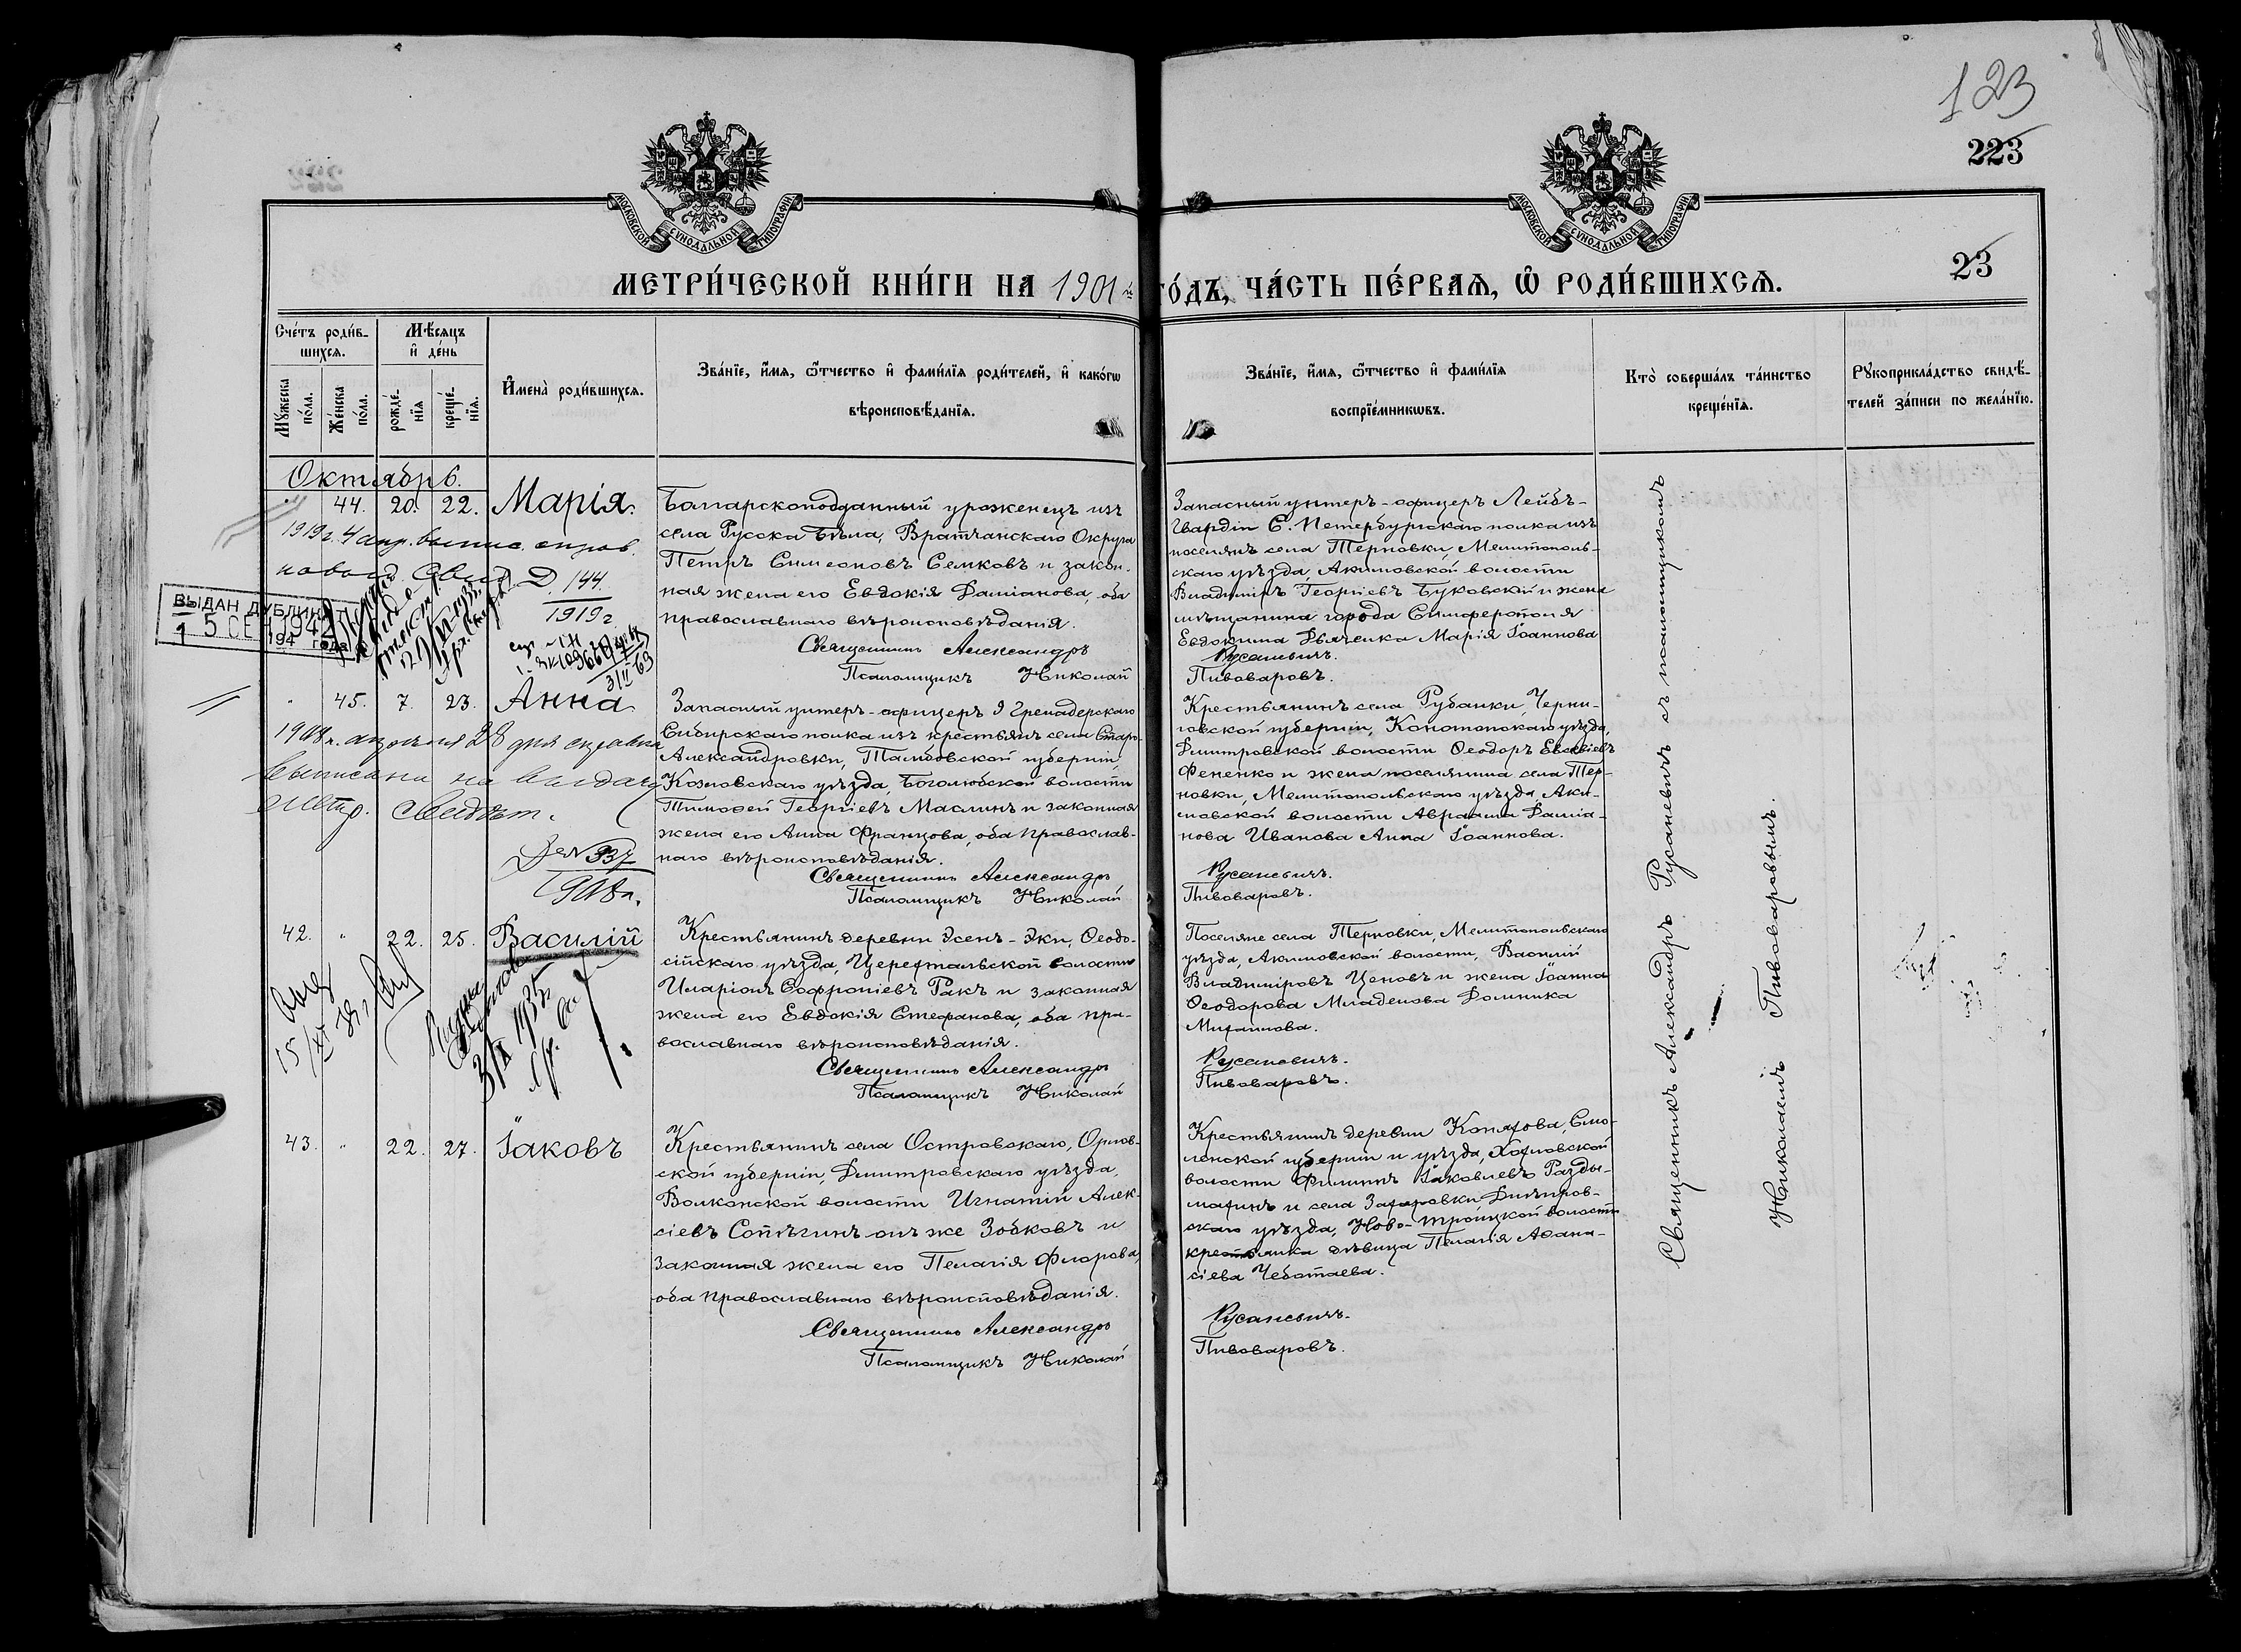 123
223
23
МОСКОВСКОЙ СѴНОДАЛЬНОЙ ТИПОГРАФІИ
МОСКОВСКОЙ СѴНОДАЛЬНОЙ ТИПОГРАФІИ
МЕТРИ́ЧЕСКОЙ КНИ́ГИ НА 1901 й ГО́ДЪ, ЧА́СТЬ ПЕ́РВАЯ, Ѽ РОДИ́ВШИХСЯ.
Сче́тъ роди́в-
шихся.
Мѣ́сяцъ
и҆ де́нь
Мꙋ́жеска по́ла.
Же́нска по́ла.
рожде́-
нїя
креще́-
нїя.
И҆мена̀ роди́вшихся.
Зва́нїе, и҆́мя, ѻ҆́тчество и҆ фами́лїя роди́телей, и҆ како́гѡ
вѣроисповѣ́данїя.
Зва́нїе, и҆́мя, ѻ҆́тчество и҆ фами́лїя
воспрїе́мникѡвъ.
Кто̀ соверша́лъ та́инство
креще́нїя.
Рꙋкоприкла́дство свидѣ́-
телей за́писи по жела́нїю.
Октябрь.
44. 20. 22. Марія.
Болгарскоподданный уроженецъ изъ
села Русска Бѣла, Вратчанскаго Округа
Петръ Симеоновъ Семковъ и закон-
ная жена его Евдокія Даміанова, оба
православнаго вѣроисповѣданія.
Священникъ Александръ
Псаломщикъ Николай
Запасный унтеръ-офицеръ Лейбъ-
Гвардіи С. Петербургскаго полка изъ
поселянъ села Терновки, Мелитополь-
скаго уѣзда, Акимовской волости
Владиміръ Георгіевъ Буковскій и жена
мѣщанина города Симферополя
Евдокима Дьяченка Марія Іоаннова
Русаневичъ.
Пивоваровъ.
1919 г. 4 апр. выпис. справ.
Д. 144
1919 г.
ВЫДАН ДУБЛИКАТ
5 СЕН 1942
194 года
3/II 63
45. 7. 23. Анна
Запасный унтеръ-офицеръ 9 Гренадерскаго
Сибирскаго полка изъ крестьянъ села Старо-
Александровки, Тамбовской губерніи,
Козловскаго уѣзда, Боголюбской волости
Тимофей Георгіевъ Маслинъ и законная
жена его Анна Францова, оба православ-
наго вѣроисповѣданія.
Священникъ Александръ
Псаломщикъ Николай
Крестьянинъ села Рубанки, Черни-
говской губерніи, Конотопскаго уѣзда,
Дмитровской волости Ѳеодоръ Евсевіевъ
Фененко и жена поселянина села Тер-
новки, Мелитопольскаго уѣзда, Аки-
мовской волости Авраама Даміа-
нова Иванова Анна Іоаннова.
Русаневичъ.
Пивоваровъ.
1918 г. апрѣля 28 дня справка
выписана на выдачу
метр. свидѣт.
Д № 337
1918 г.
42. " 22. 25. Василій
Крестьянинъ деревни Эсенъ-Эки, Ѳеодо-
сійскаго уѣзда, Цереѳтальской волости
Иларіонъ Софроніевъ Ракъ и законная
жена его Евдокія Стефанова, оба пра-
вославнаго вѣроисповѣданія.
Священникъ Александръ
Псаломщикъ Николай
Поселяне села Терновки, Мелитопольскаго
уѣзда, Акимовской волости, Василій
Владиміровъ Ценовъ и жена Іоанна
Ѳеодорова Младенова Домника
Михаилова.
Русаневичъ.
Пивоваровъ.
43. " 22. 27. Іаковъ
Крестьянинъ села Островскаго, Орлов-
ской губерніи, Дмитровскаго уѣзда,
Волконской волости Игнатій Алек-
сіевъ Сопѣгинъ онъ же Зобковъ и
законная жена его Пелагія Флорова,
оба православнаго вѣроисповѣданія.
Священникъ Александръ
Псаломщикъ Николай
Крестьянинъ деревни Копятова, Смо-
ленской губерніи и уѣзда, Хохловской
волости Филиппъ Іаковлевъ Разды-
махинъ и села Захаровки Днѣпров-
скаго уѣзда, Ново-Троицкой волости
крестьянка дѣвица Пелагія Аѳана-
сіева Чеботаева.
Русаневичъ.
Пивоваровъ.
Священникъ Александръ Русаневичъ съ псаломщикомъ
Николаемъ Пивоваровымъ.